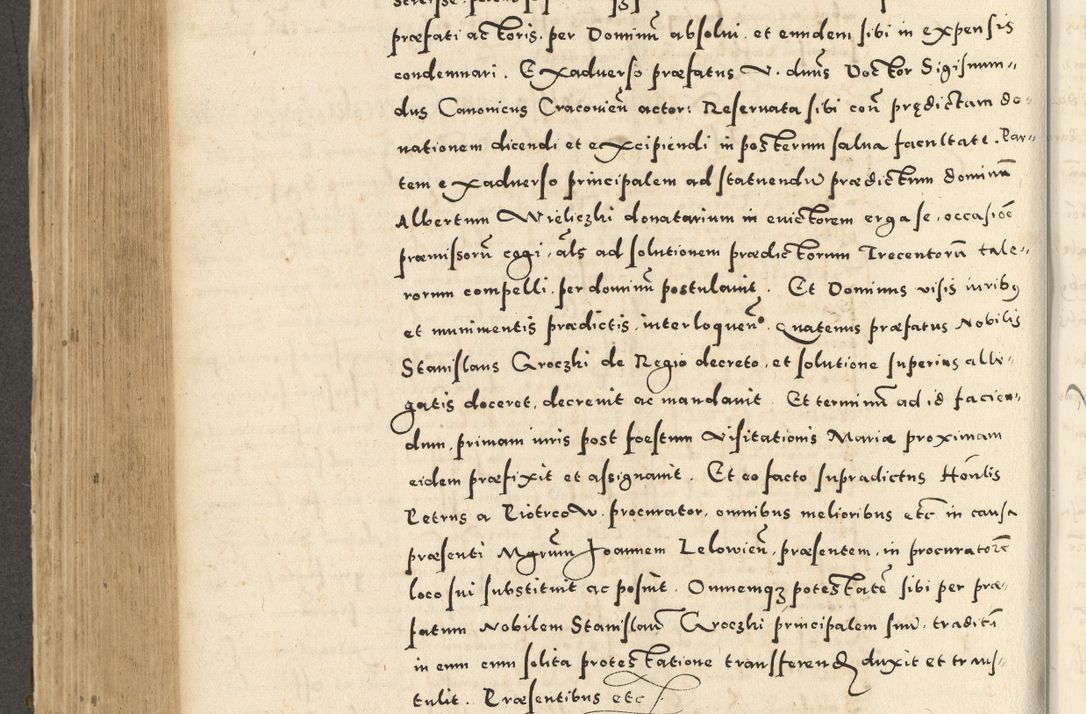 præfati actoris. per Dominũ absolui. et eundem sibi in expensis
condemnari. Exaduerso præfatus V. dnũs Doctor Sigismun„
dus Canonicus Cracovieñ actor: Reseruata sibi coñ prędictam do„
nationem dicendi et excipiendi in posterum salua facultate. Par„
tem exaduerso principalem ad statuendũ prædictum dominũ
Albertum Wieliczki donatarium in euictorem erga se, occasiõe
præmissorũ cogi, als ad solutionem prædictorum Trecentorũ tale„
rorum compelli. per dominũ postulauit. Et Dominus visis iuribꝰ
et munimentis prædictis, interloqueñ. quatenus præfatus Nobilis
Stanislaus Groczki de Regio decreto, et solutione superius alle„
gatis doceret, decreuit ac mandauit. Et terminũ ad id facien„
dum, primam iuris post foestum Visitationis Mariæ proximam
eidem præfixit et assignauit. Et eo facto supradictus Hoñlis
Petrus a Piotrcow. procurator, omnibus melioribus etc̃ in causa
præsenti Mgrũm Joannem Lelowieñ, præsentem, in procuratorẽ
loco sui substituit ac posuit. Omnemqꝫ potestatẽ sibi per præ„
fatum Nobilem Stanislaũ Groczki principalem suũ, traditã
in eum cum solita protestatione transferendꝭ duxit et trans„
tulit. Præsentibus etc